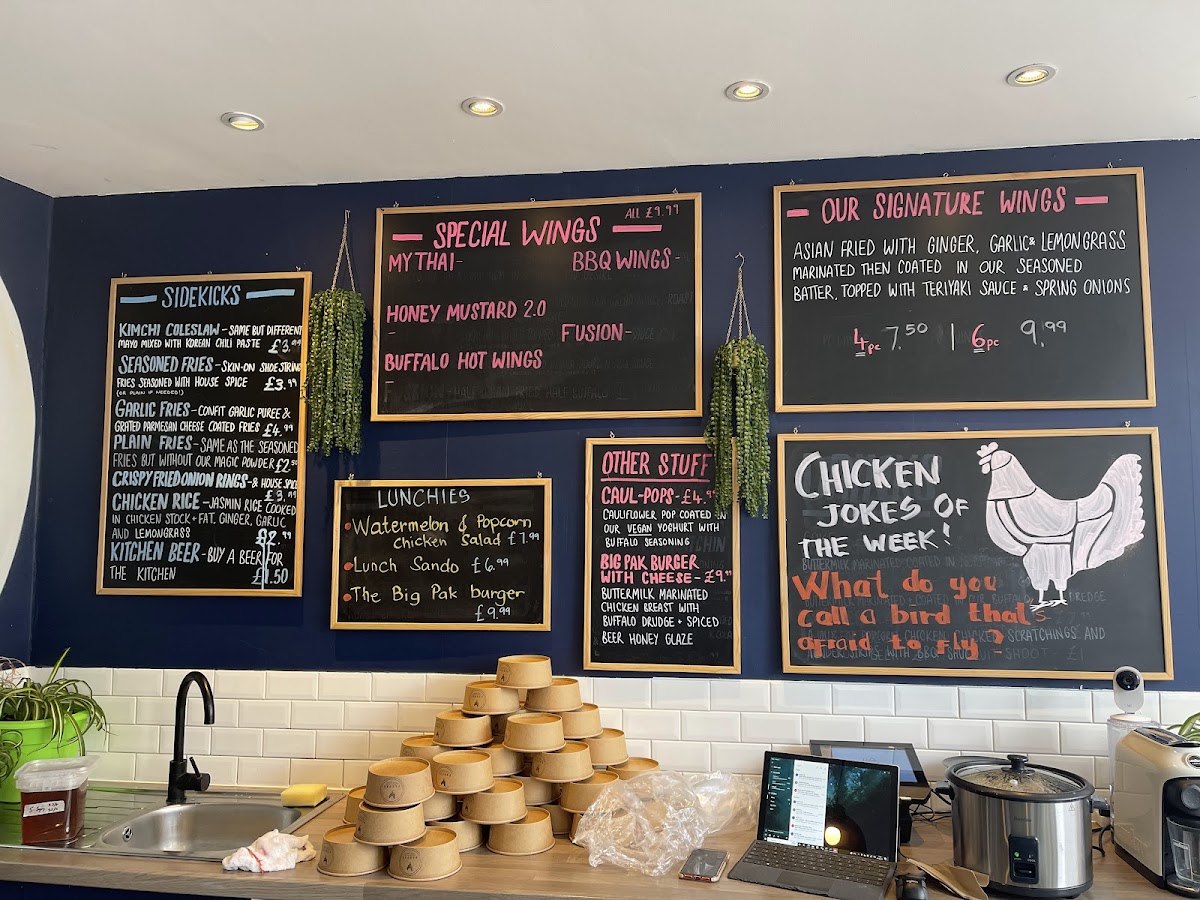 SIDEKICKS
KIMCHI COLESLAW - SAME BUT DIFFERENT
MAYO MIXED WITH KOREAN CHILI PASTE £3.99
SEASONED FRIES - SKIN-ON SHOESTRING
FRIES SEASONED WITH HOUSE SPICE £3.99
(OR PLAIN IF NEEDED!)
GARLIC FRIES - CONFIT GARLIC PUREE &
GRATED PARMESAN CHEESE COATED FRIES £4.99
PLAIN FRIES - SAME AS THE SEASONED
FRIES BUT WITHOUT OUR MAGIC POWDER £2.50
CRISPY FRIED ONION RINGS - & HOUSE SPICE
£3.99
CHICKEN RICE - JASMIN RICE COOKED
IN CHICKEN STOCK + FAT, GINGER, GARLIC
AND LEMONGRASS £2.99
KITCHEN BEER - BUY A BEER FOR
THE KITCHEN £1.50
SPECIAL WINGS ALL £9.99
MY THAI - BBQ WINGS -
HONEY MUSTARD 2.0
- FUSION -
BUFFALO HOT WINGS
-
OUR SIGNATURE WINGS
ASIAN FRIED WITH GINGER, GARLIC & LEMONGRASS
MARINATED THEN COATED IN OUR SEASONED
BATTER, TOPPED WITH TERIYAKI SAUCE & SPRING ONIONS
4pc 7.50 | 6pc 9.99
LUNCHIES
• Watermelon & Popcorn
chicken Salad £7.99
• Lunch Sando £6.99
• The Big Pak burger
£9.99
OTHER STUFF
CAUL-POPS - £4.9
CAULIFLOWER POP COATED IN
OUR VEGAN YOGHURT WITH
BUFFALO SEASONING
BIG PAK BURGER
WITH CHEESE - £9.99
BUTTERMILK MARINATED
CHICKEN BREAST WITH
BUFFALO DRUDGE + SPICED
BEER HONEY GLAZE
CHICKEN
JOKES OF
THE WEEK!
What do you
call a bird that's
afraid to fly?